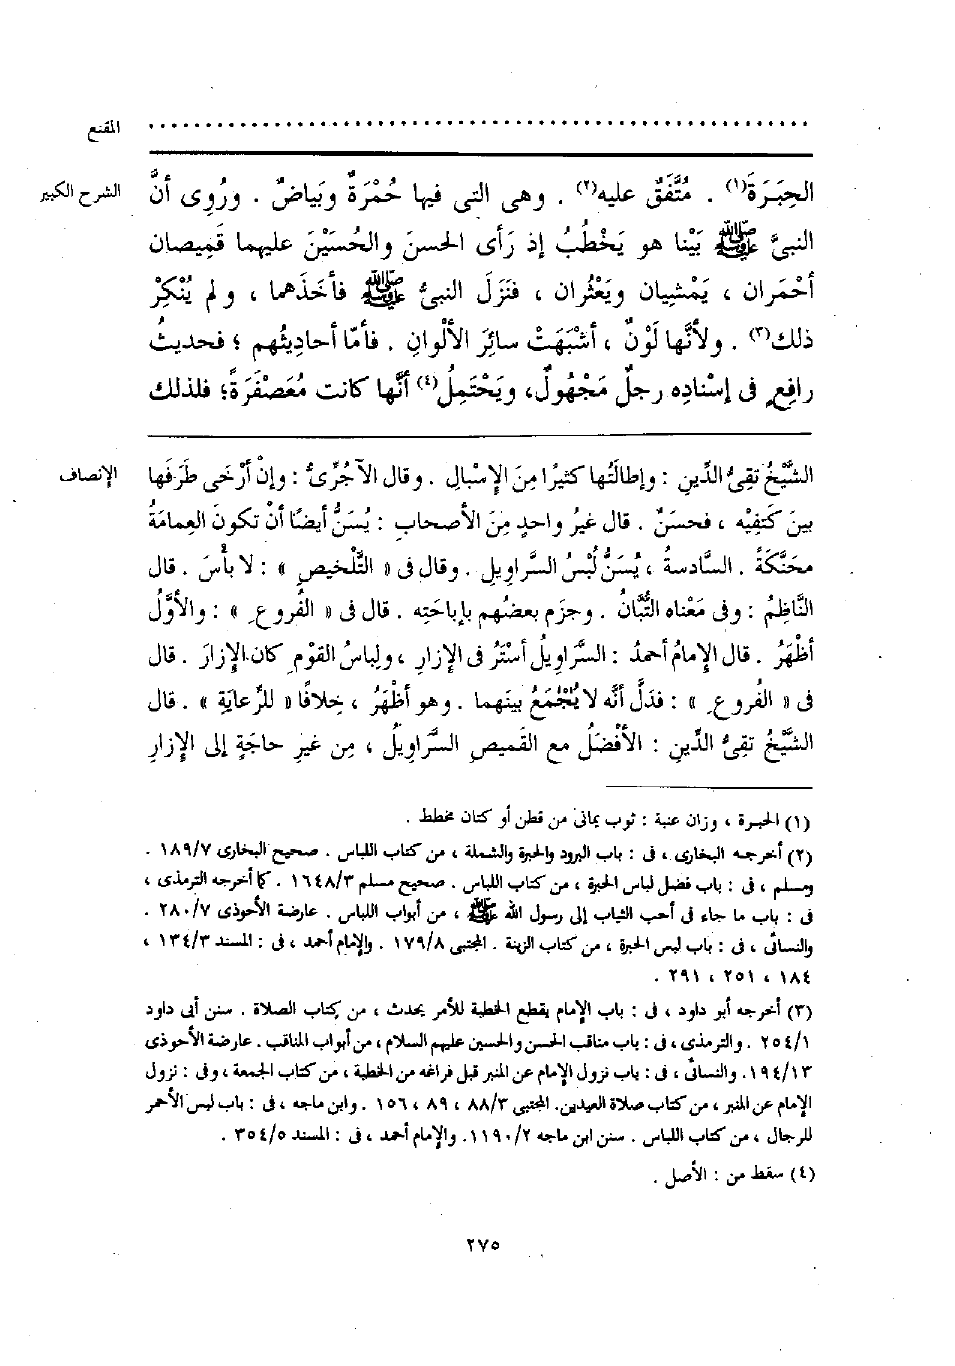 المقنع ........................................................
الشرح الكبير
الحِبَرَةَ(١) . مُتَّفَقٌ عليه(٢) . وهى التى فيها حُمْرَةٌ وبَياضٌ . ورُوِى أنَّ
النبىَّ ﷺ بَيْنا هو يَخْطُبُ إذ رَأى الحسنَ والحُسَيْنَ عليهما قَمِيصان
أحْمَران ، يَمْشِيان ويَعْثُران ، فنَزَلَ النبىُّ ﷺ فأخَذَهما ، ولم يُنْكِرْ
ذلك(٣) . ولأنَّها لَوْنٌ ، أشْبَهَتْ سائِرَ الألْوانِ . فأمّا أحادِيثُهم ؛ فحديثُ
رافِعٍ فى إسْنادِه رجلٌ مَجْهُولٌ، ويَحْتَمِلُ(٤) أنَّها كانت مُعَصْفَرَةً؛ فلذلك
الإنصاف
الشَّيْخُ تقِىُّ الدِّينِ : وإطالَتُها كثيرًا مِنَ الإِسْبالِ . وقال الآجُرِّىُّ : وإنْ أرْخَى طَرَفَها
بينَ كَتفِيْه ، فحسَنٌ . قال غيرُ واحدٍ مِنَ الأصحابِ : يُسَنُّ أيضًا أنْ تكونَ العِمامَةُ
محَنَّكَةً . السَّادسةُ ، يُسَنُّ لُبْسُ السَّراوِيلِ . وقال فى « التَّلْخيصِ » : لا بأْسَ . قال
النَّاظِمُ : وفى مَعْناه التُّبَّانُ . وجزَم بعضُهم بإباحَتِه . قال فى « الفُروعِ » : والأوَّلُ
أظْهَرُ . قال الإمامُ أحمدُ : السَّراوِيلُ أسْتَرُ فى الإزارِ ، ولِباسُ القوْمِ كان الإزارَ . قال
فى « الفُروعِ » : فدَلَّ أنَّه لا يُجْمَعُ بينَهما . وهو أظْهَرُ ، خِلافًا « للرِّعايَةِ » . قال
الشَّيْخُ تقِىُّ الدِّينِ : الأفْضَلُ مع القَميصِ السَّراوِيلُ ، مِن غيرِ حاجَةٍ إلى الإزارِ
(١) الحبرة ، وزان عنبة : ثوب يمانى من قطن أو كتان مخطط .
(٢) أخرجه البخارى ، فى : باب البرود والحبرة والشملة ، من كتاب اللباس . صحيح البخارى ١٨٩/٧ .
ومسلم ، فى : باب فضل لباس الحبرة ، من كتاب اللباس . صحيح مسلم ١٦٤٨/٣ . كما أخرجه الترمذى ،
فى : باب ما جاء فى أحب الثياب إلى رسول الله ﷺ ، من أبواب اللباس . عارضة الأحوذى ٢٨٠/٧ .
والنسائى ، فى : باب لبس الحبرة ، من كتاب الزينة . المجتبى ١٧٩/٨ . والإمام أحمد ، فى : المسند ١٣٤/٣ ،
١٨٤ ، ٢٥١ ، ٢٩١ .
(٣) أخرجه أبو داود ، فى : باب الإمام يقطع الخطبة للأمر يحدث ، من كتاب الصلاة . سنن أبى داود
٢٥٤/١ . والترمذى ، فى : باب مناقب الحسن والحسين عليهم السلام ، من أبواب المناقب . عارضة الأحوذى
١٩٤/١٣. والنسائى ، فى : باب نزول الإمام عن المنبر قبل فراغه من الخطبة ، من كتاب الجمعة ، وفى : نزول
الإمام عن المنبر ، من كتاب صلاة العيدين. المجتبى ٨٨/٣ ، ٨٩ ، ١٥٦ . وابن ماجه ، فى : باب لبس الأحمر
للرجال ، من كتاب اللباس . سنن ابن ماجه ١١٩٠/٢. والإمام أحمد ، فى : المسند ٣٥٤/٥ .
(٤) سقط من : الأصل .
٢٧٥